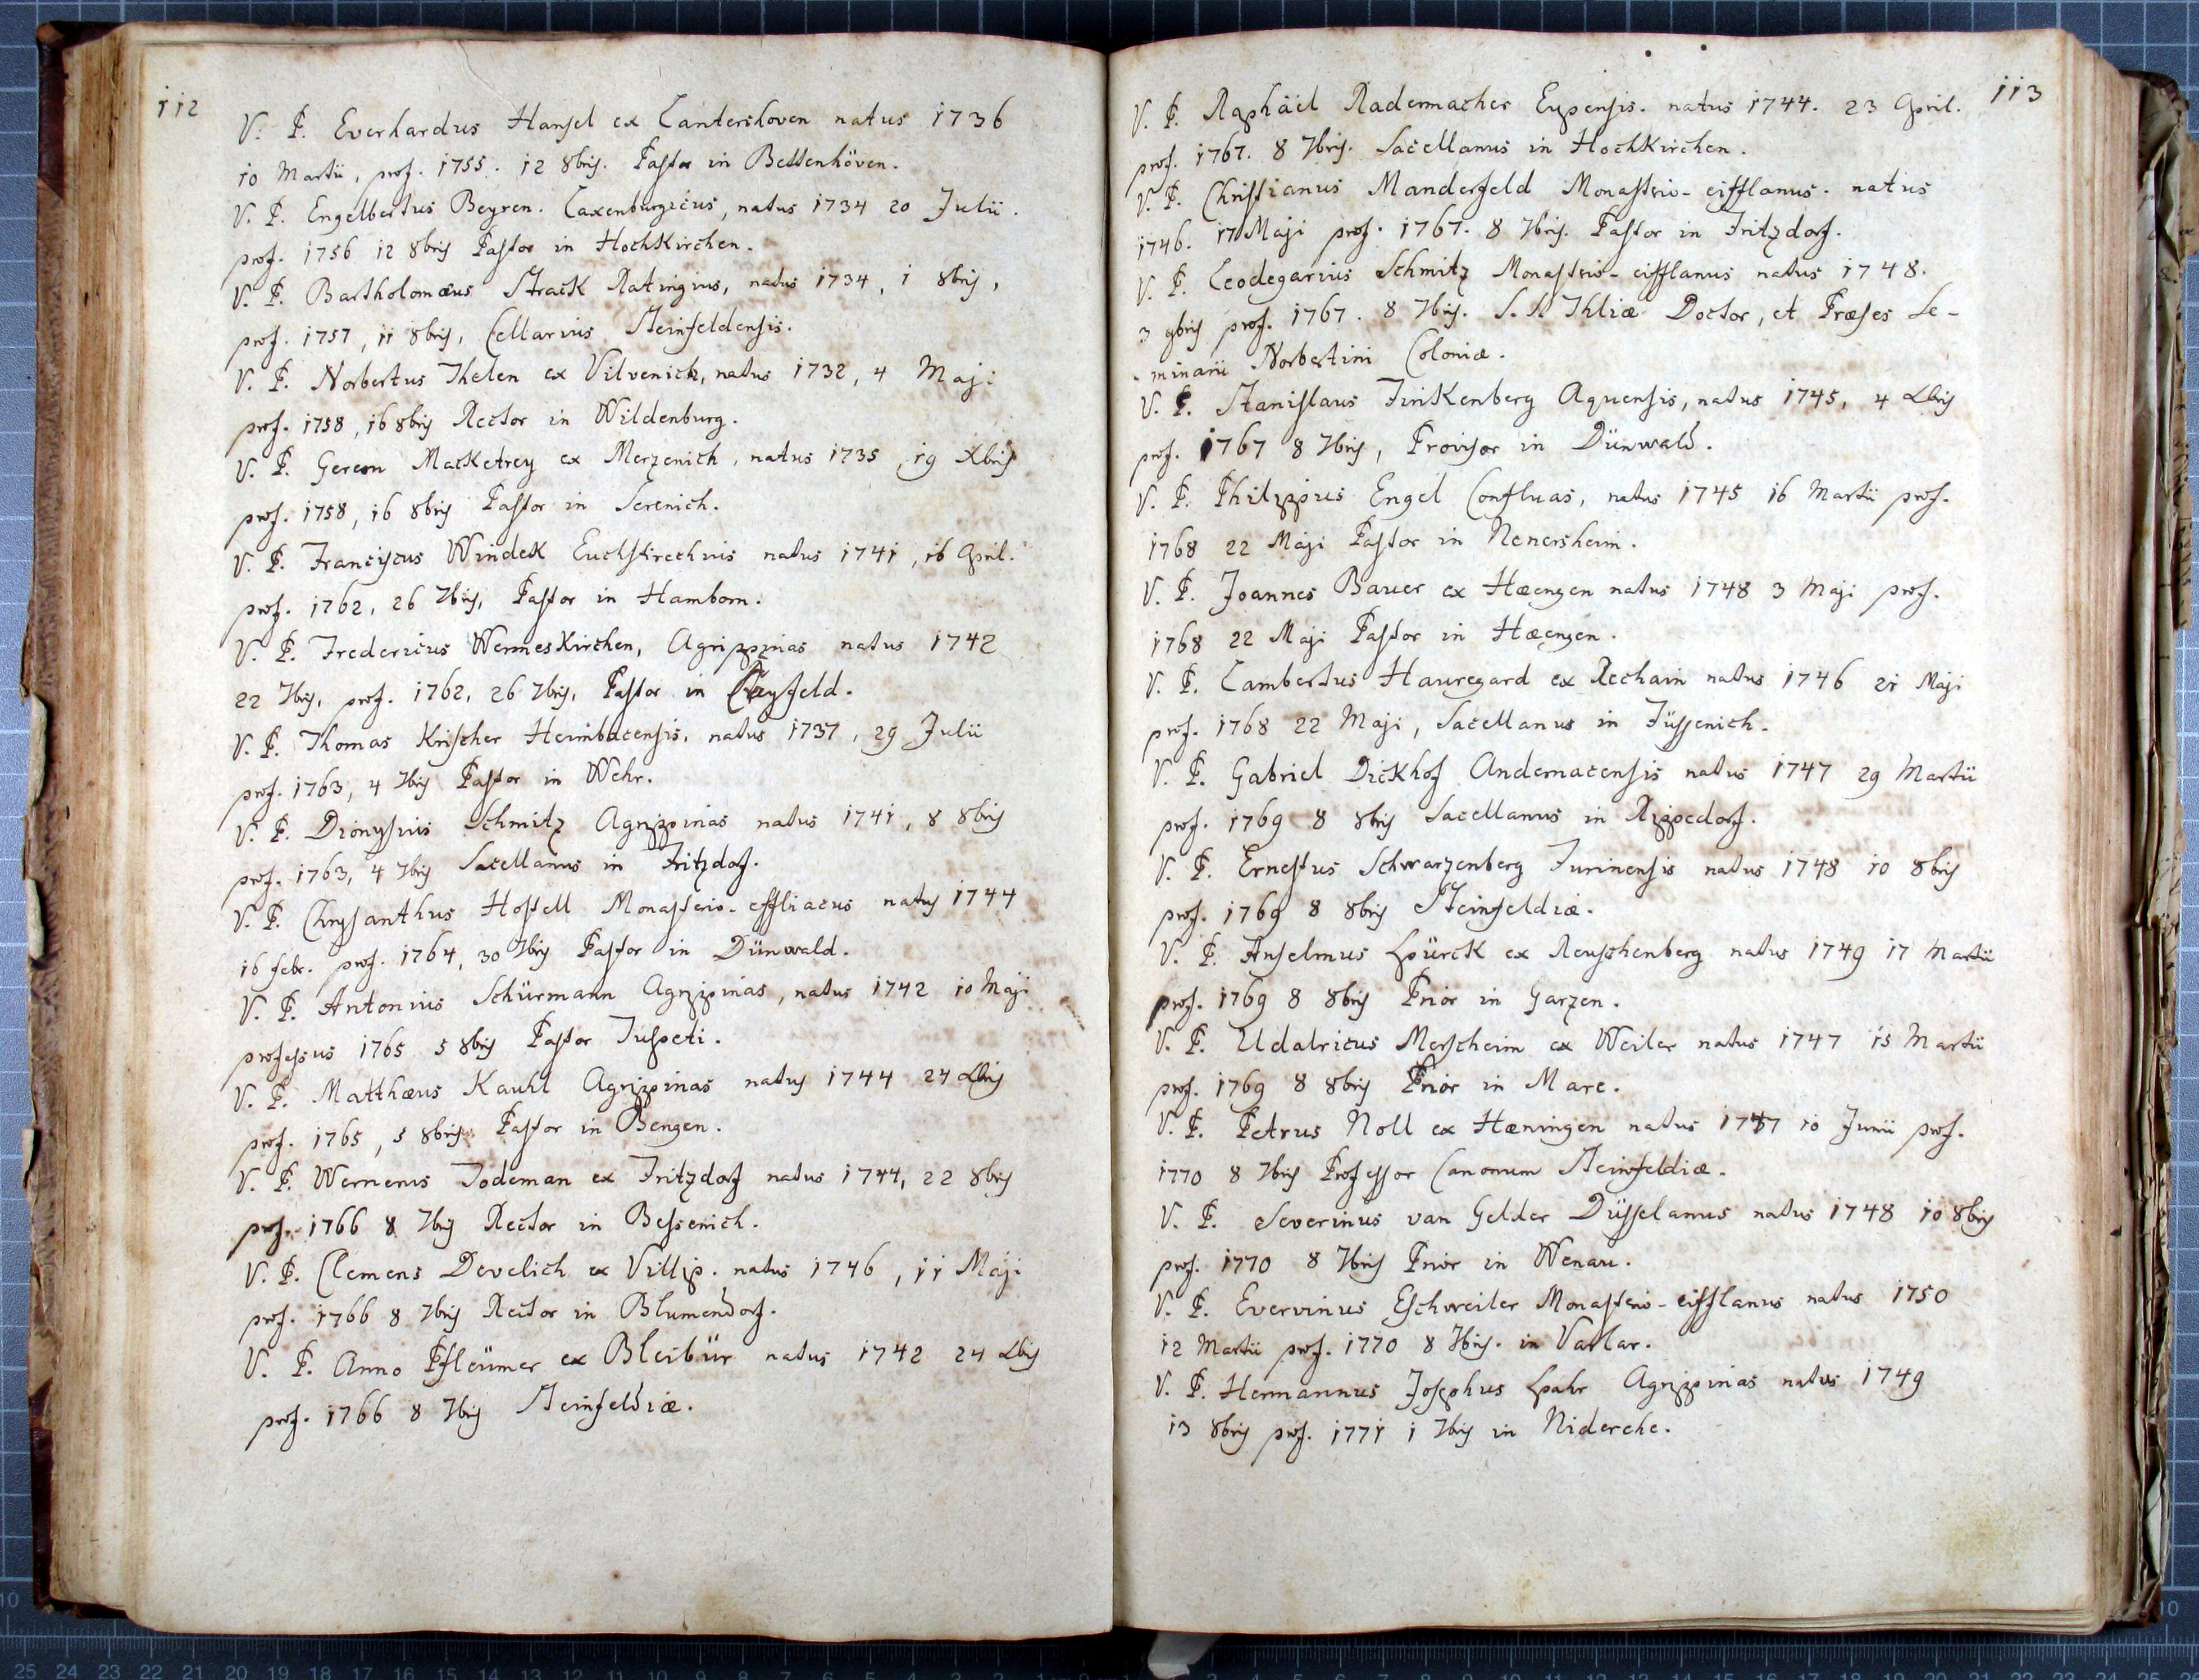 112
V. P. Everhardus Hansel ex Lantershoven natus 1736
10 Martii, prof. 1755. 12 8bris. Pastor in Bettenhöven.
V. P. Engelbertus Beyren. Laxenburgicus, natus 1734 20 Julii.
prof. 1756 12 8bris Pastor in Hochkirchen.
V. P. Bartholomæus Strack Ratingius, natus 1734, 1 8bris,
prof. 1757, 11 8bris, Cellarius Steinfeldensis.
V. P. Norbertus Thelen ex Vilvenich, natus 1732, 4 Maji
prof. 1758, 16 8bris Rector in Wildenburg.
V. P. Gereon Macketrey ex Merzenich, natus 1735 19 Xbris
prof. 1758, 16 8bris Pastor in Serenich.
V. P. Franciscus Windek natus 1741, 16 April.
prof. 1762, 26 7bris, Pastor in Hamborn.
V. P. Fredericus Wermeskirchen, Agrippinas natus 1742
22 7bris, prof. 1762, 26 7bris, Pastor in Creyfeld.
V. P. Thomas Krischer Heimbacensis, natus 1737, 29 Julii
prof. 1763, 4 7bris Pastor in Wehr.
V. P. Dionysius Schmitz Agrippinas natus 1741, 8 8bris
prof. 1763, 4 7bris Sacellanus in Fritzdorf.
V. P. Chrysanthus Hostell Monasterio-effliacus natus 1744
16 febr. prof. 1764, 30 7bris Pastor in Dünwald.
V. P. Antonius Schürmann Agrippinas, natus 1742 10 Maji
professus 1765 5 8bris Pastor Tuspeti.
V. P. Matthæus Kauhl Agrippinas natus 1744 24 Xbris
prof. 1765, 5 8bris Pastor in Bengen.
V. P. Wernerus Todeman ex Fritzdorf natus 1744, 22 8bris
prof. 1766 8 7bris Rector in Bessenich.
V. P. Clemens Develich ex Villip. natus 1746, 11 Maji
prof. 1766 8 7bris Rector in Blumendorf.
V. P. Anno Pfleümer ex Bleibür natus 1742 24 Xbris
prof. 1766 8 7bris Steinfeldiæ.
113
V. P. Raphäel Rademacher Eupensis. natus 1744. 23 April.
prof. 1767. 8 7bris. Sacellanus in Hochkirchen.
V. P. Christianus Manderfeld Monastrio-eifflanus. natus
1746. 17 Maji prof. 1767. 8 7bris. Pastor in Fritzdorf.
V. P. Leodegarius Schmitz Monastrio-eifflanus natus 1748.
3 9bris prof. 1767. 8 7bris. S. S. Thliæ Doctor, et Præses Se-
minarii Norbertini Coloniæ.
V. P. Stanislaus Finkenberg Aquensis, natus 1745, 4 Xbris
prof. 1767 8 7bris, Provisor in Dünwald.
V. P. Philippus Engel Confluas, natus 1745 16 Martii prof.
1768 22 Maji Pastor in Nenersheim.
V. P. Joannes Bauer ex Hæengen natus 1748 3 Maji prof.
1768 22 Maji Pastor in Hæengen.
V. P. Lambertus Hauregard ex Rechain natus 1746 21 Maji
prof. 1768 22 Maji, Sacellanus in Füssenich.
V. P. Gabriel Dickhof Andernacensis natus 1747 29 Martii
prof. 1769 8 8bris Sacellanus in Rippedorf.
V. P. Ernestus Schwarzenberg Juninensis natus 1748 10 8bris
prof. 1769 8 8bris Steinfeldiæ.
V. P. Anselmus Spürck ex Reuschenberg natus 1749 17 Martii
prof. 1769 8 8bris Prior in Garzen.
V. P. Udalricus Merscheim ex Weiler natus 1747 15 Martii
prof. 1769 8 8bris Prior in Mare.
V. P. Petrus Noll ex Hæningen natus 1747 10 Junii prof.
1770 8 7bris Professor Canonum Steinfeldiæ.
V. P. Severinus van Gelder Düsselanus natus 1748 10 8bris
prof. 1770 8 7bris Prior in Wenau.
V. P. Evervinus Eschweiler Monasterio-eifflanus natus 1750
12 Martii prof. 1770 8 7bris. in Varlar.
V. P. Hermannus Josephus Spahr Agrippinas natus 1749
13 8bris prof. 1771 1 7bris in Niderehe.